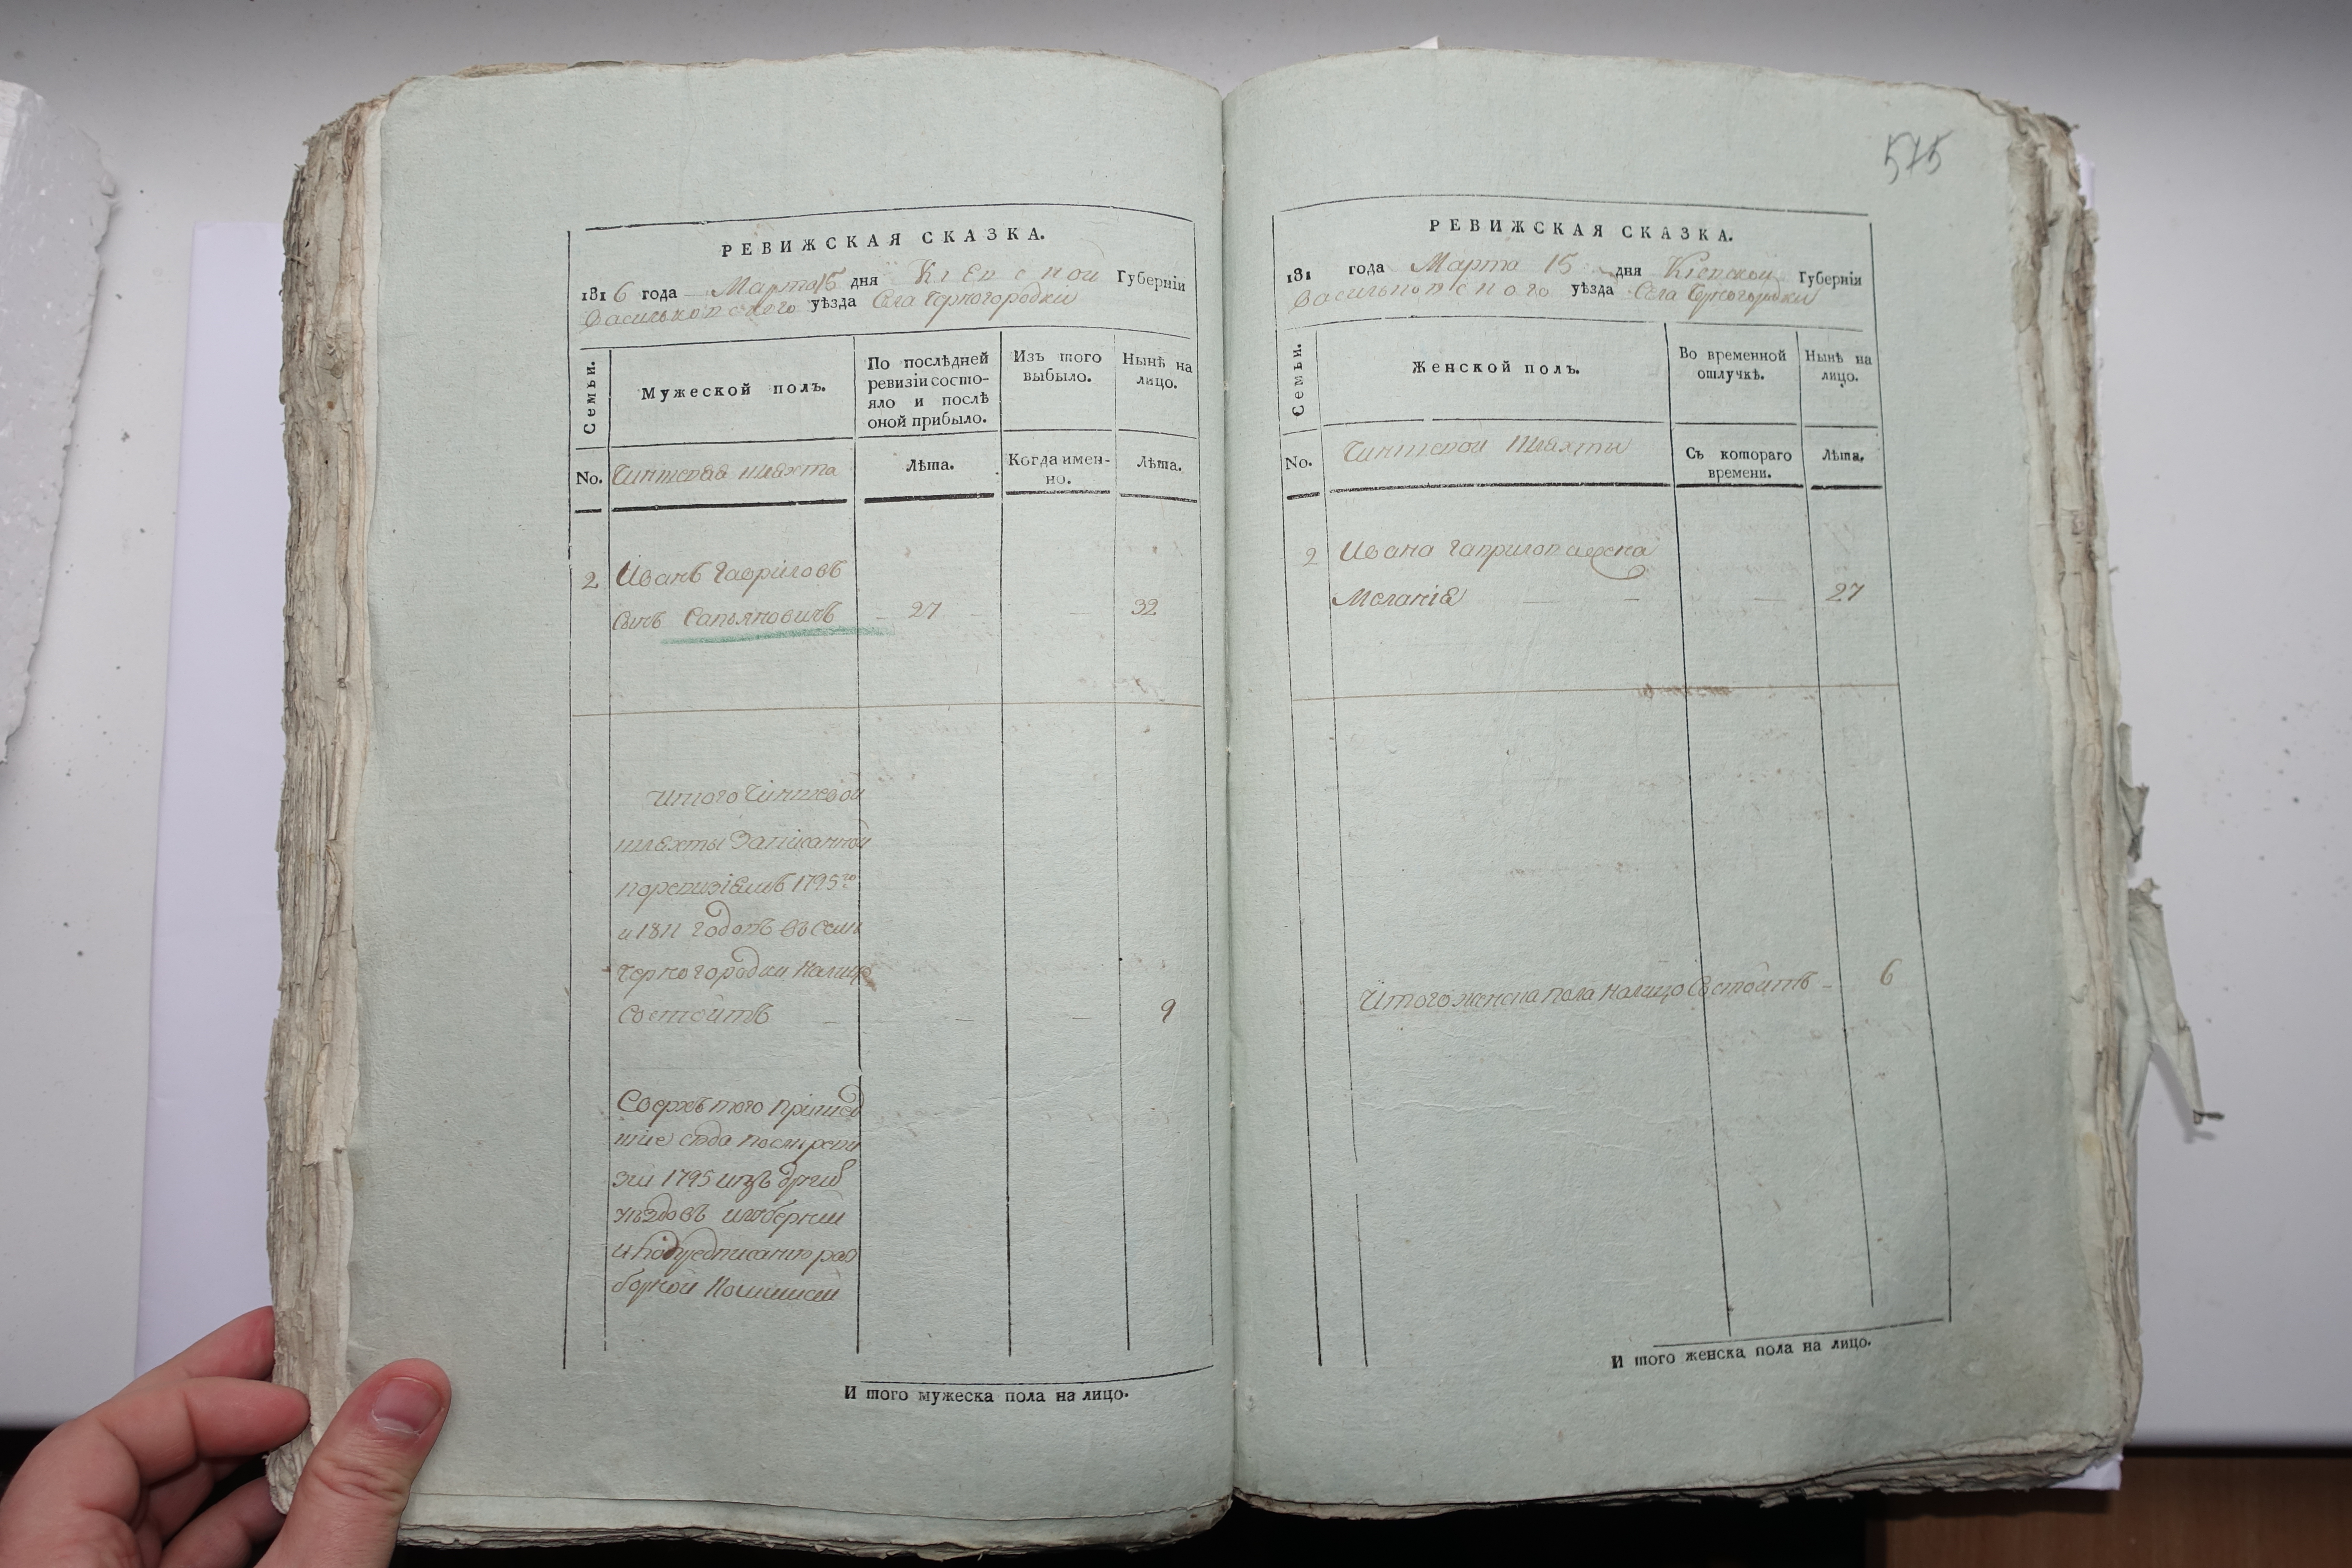 575
РЕВИЖСКАЯ СКАЗКА.
1816 года Марта 15 дня Кіевской Губерніи
Васильковского уѣзда Села Черногородки
Семьи.
Мужеской полъ.
По послѣдней ревизіи состо-
яло и послѣ
оной прибыло.
Изъ того
выбыло.
Нынѣ на
лицо.
No.
Чиншевая шляхта
Лѣта.
Когда имен-
но.
Лѣта.
2 Иванъ Гавриловъ
Сынъ Сапьяновичъ 27 32
Итого Чиншевой
шляхты Записанной
поревизіямъ 1795го
и 1811 годовъ въ селѣ
Черногородки налицо
состоитъ 9
Сверхъ того пришед
шіе сюда после реви
зіи 1795 изъ
уѣздовъ игуберній
раз
борной Комиссіи
И того мужеска пола на лицо.
РЕВИЖСКАЯ СКАЗКА.
181 года Марта 15 дня Кіевской Губерніи
Васильковского уѣзда Села Черногородки
Семьи.
Женской полъ.
Во временной
отлучкѣ.
Нынѣ на
лицо.
No.
Чиншевой Шляхты
Съ котораго
времени.
Лѣта.
2 Ивана Гаврилова жена
Меланія 27
Итого женска пола налицо Состоитъ 6
И того женска пола на лицо.